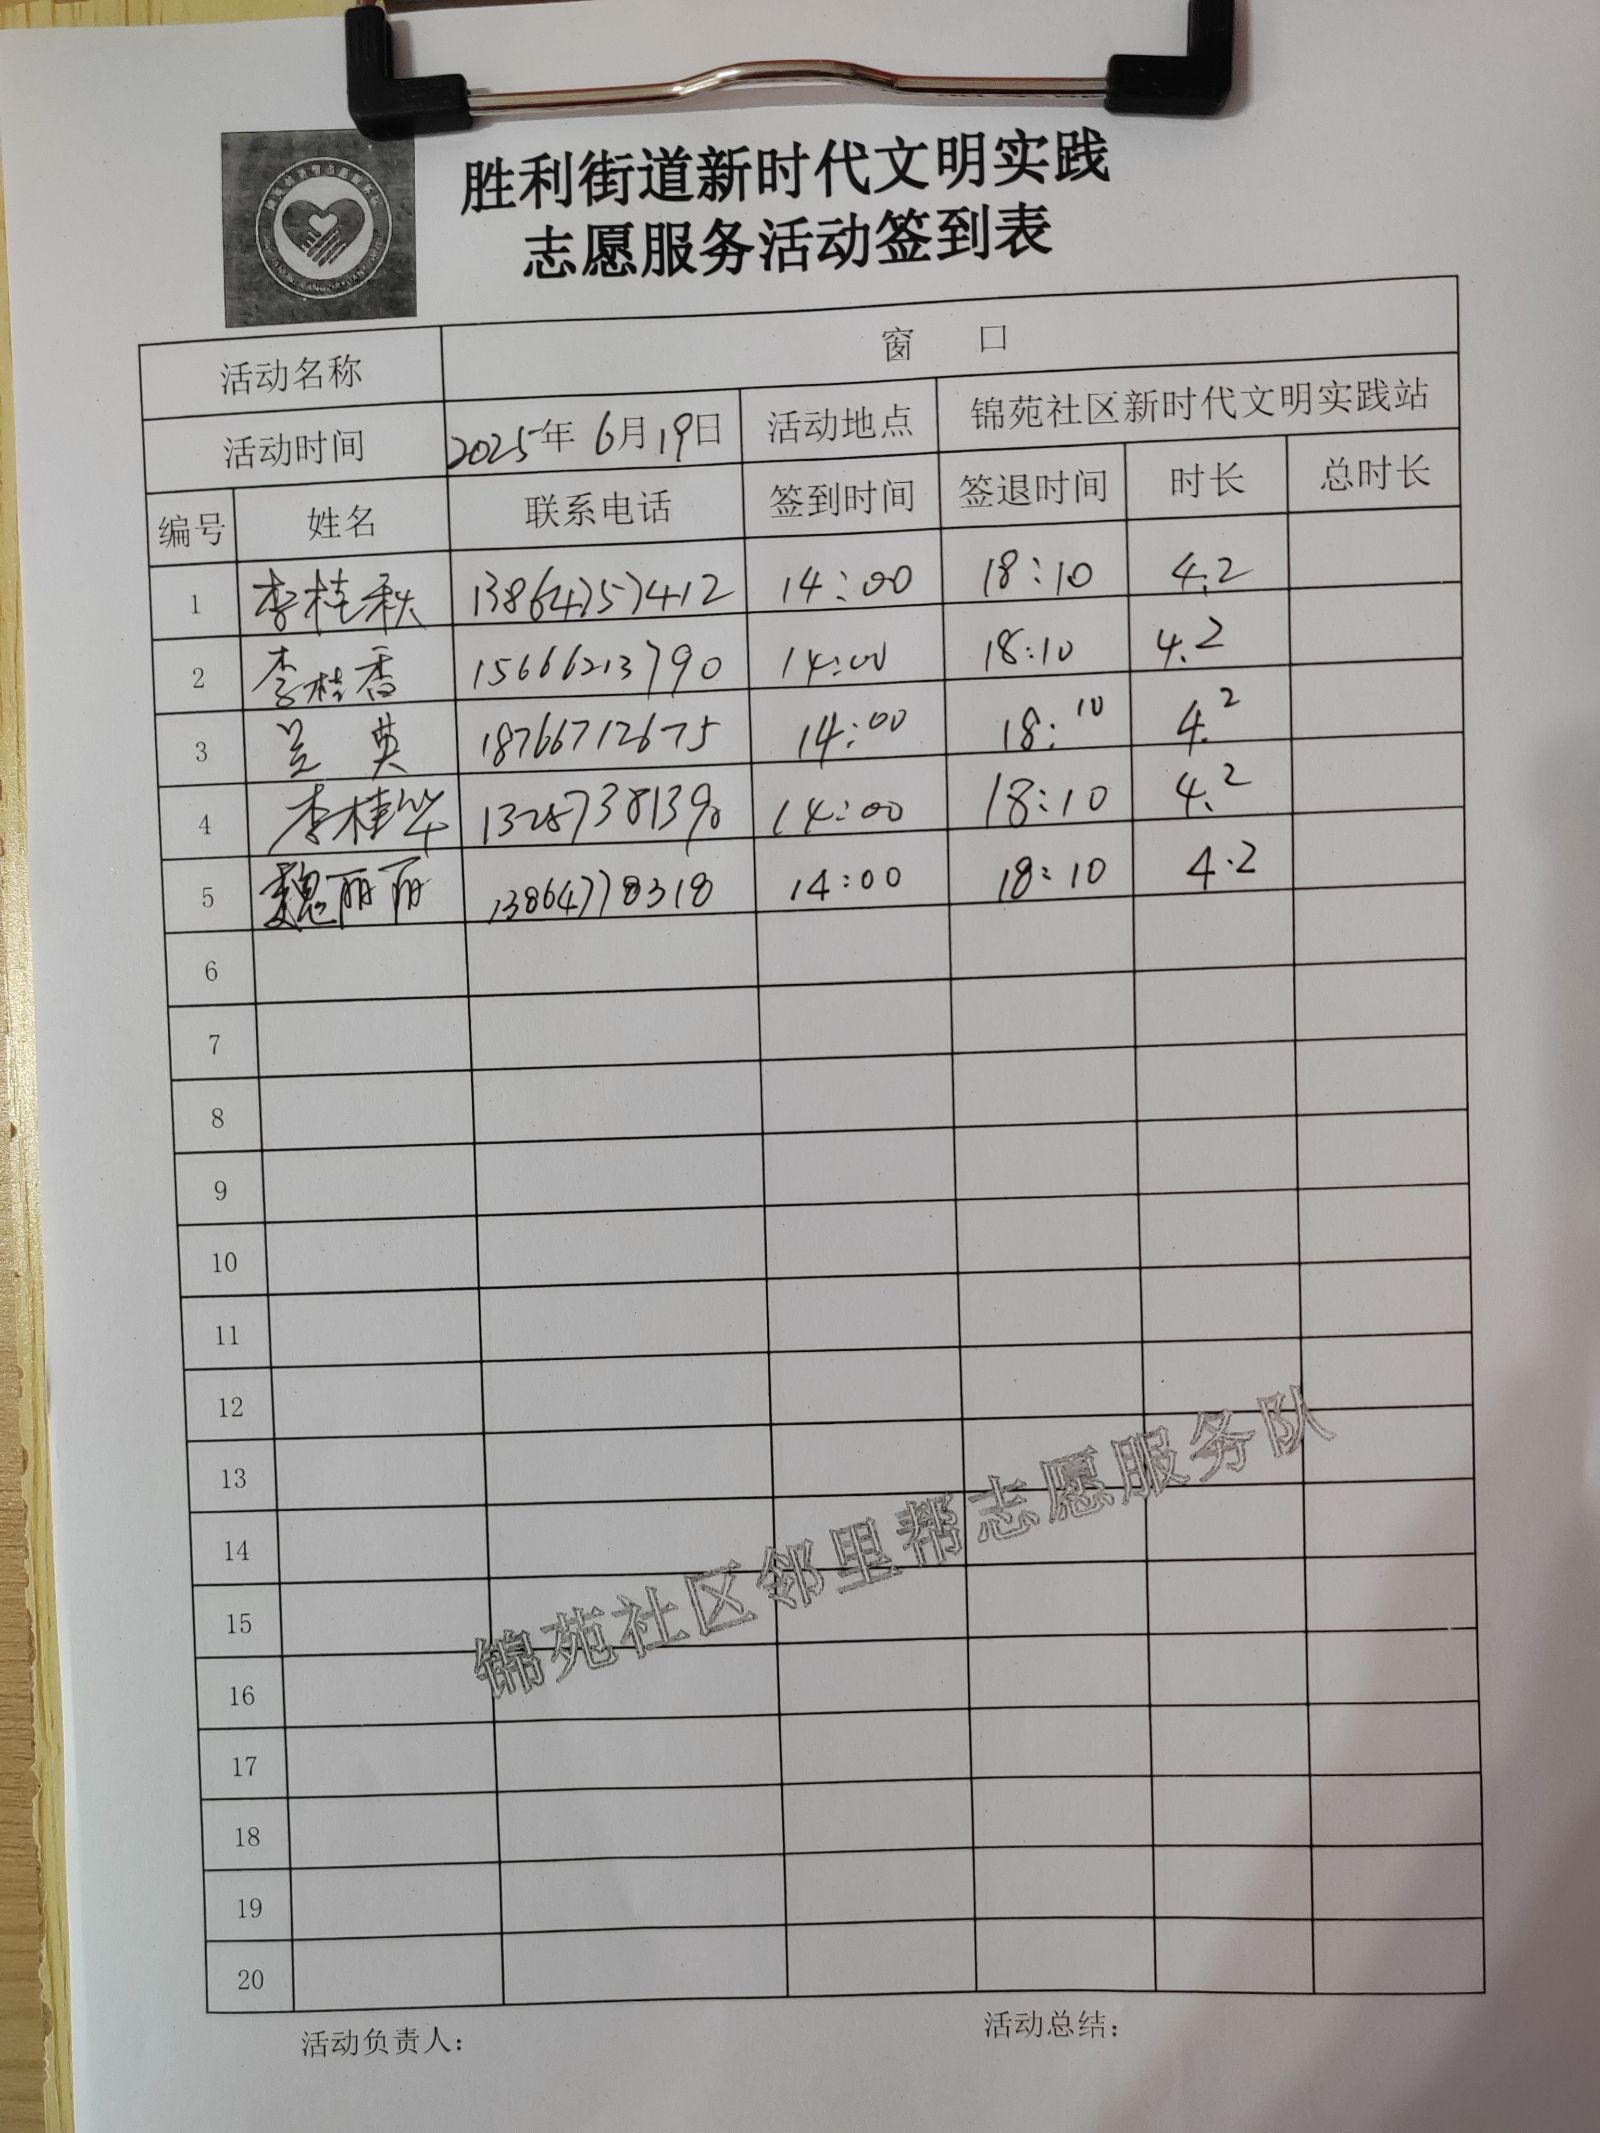 胜利街道新时代文明实践
志愿服务活动签到表
活动名称 窗 口
活动时间 2025年 6月19日 活动地点 锦苑社区新时代文明实践站
编号 姓名 联系电话 签到时间 签退时间 时长 总时长
1 李桂秋 13864757412 14:00 18:10 4.2
2 李桂香 15666213790 14:00 18:10 4.2
3 兰英 18766712675 14:00 18:10 4.2
4 李桂华 14:00 18:10 4.2
5 魏丽丽 13864778318 14:00 18:10 4.2
6
7
8
9
10
11
12
13
14
15
16
17
18
19
20
锦苑社区邻里帮志愿服务队
活动负责人： 活动总结：